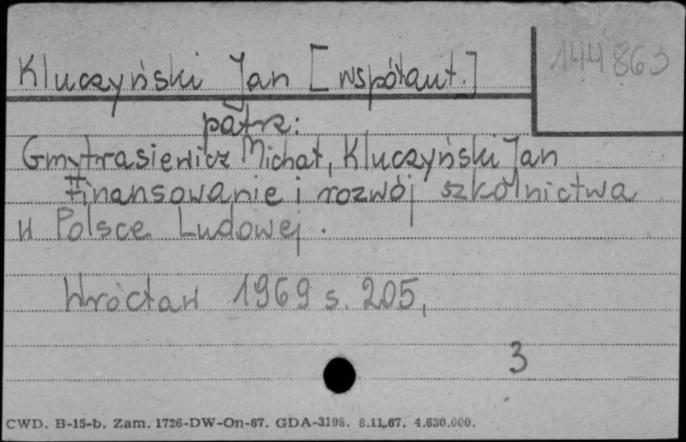 Kluczyński Jan [współaut.]
144863
patrz:
Gmytrasiewicz Michał, Kluczyński Jan
Finansowanie i rozwój szkolnictwa
w Polsce Ludowej.
Wrocław 1969 s. 205,
3
CWD. B-15-b. Zam. 1726-DW-On-67. GDA-3198. 8.11.67. 4.630.000.